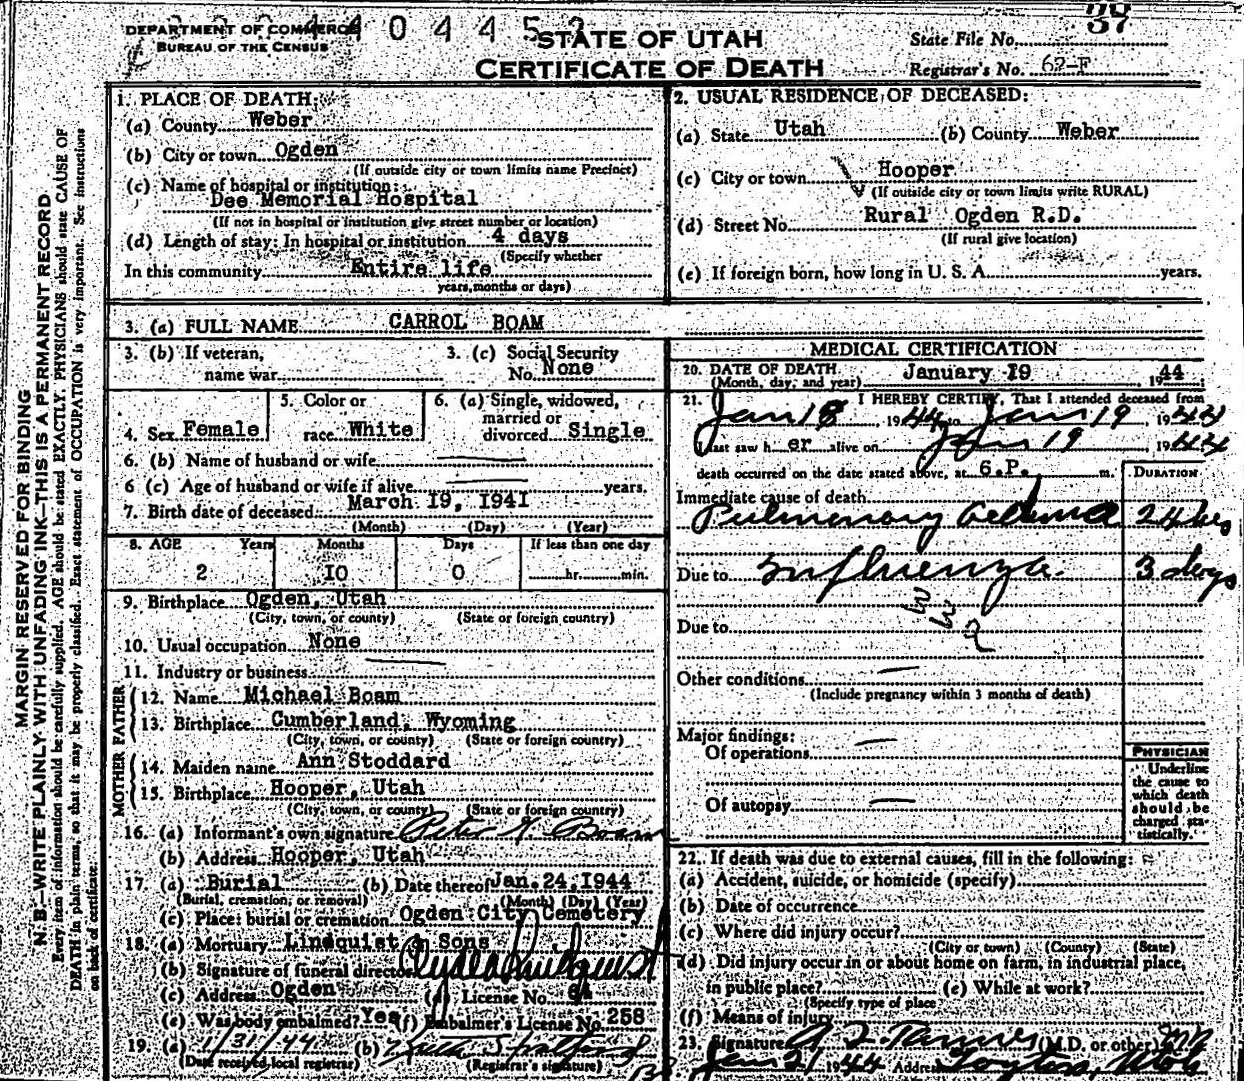 DEPARTMENT OF COMMERCE
BUREAU OF THE CENSUS
STATE OF UTAH
CERTIFICATE OF DEATH
State File No. 37
Registrar's No. 62-F
MARGIN RESERVED FOR BINDING
N. B.—WRITE PLAINLY WITH UNFADING INK—THIS IS A PERMANENT RECORD
Every item of information should be carefully supplied. AGE should be stated EXACTLY. PHYSICIANS should state CAUSE OF
DEATH in plain terms, so that it may be properly classified. Exact statement of OCCUPATION is very important. See instructions
on back of certificate.
1. PLACE OF DEATH:
(a) County Weber
(b) City or town Ogden
(If outside city or town limits name Precinct)
(c) Name of hospital or institution:
Dee Memorial Hospital
(If not in hospital or institution give street number or location)
(d) Length of stay: In hospital or institution 4 days
(Specify whether
In this community Entire life
years, months or days)
2. USUAL RESIDENCE OF DECEASED:
(a) State Utah (b) County Weber
(c) City or town Hooper
(If outside city or town limits write RURAL)
(d) Street No. Rural Ogden R.D.
(If rural give location)
(e) If foreign born, how long in U. S. A. years.
3. (a) FULL NAME CARROL BOAM
3. (b) If veteran, name war
3. (c) Social Security No. None
4. Sex Female
5. Color or race White
6. (a) Single, widowed, married or divorced Single
6. (b) Name of husband or wife
6 (c) Age of husband or wife if alive years.
7. Birth date of deceased March 19, 1941
(Month) (Day) (Year)
8. AGE Years Months Days If less than one day
2 10 0 hr. min.
9. Birthplace Ogden, Utah
(City, town, or county) (State or foreign country)
10. Usual occupation None
11. Industry or business
FATHER
12. Name Michael Boam
13. Birthplace Cumberland, Wyoming
(City, town, or county) (State or foreign country)
MOTHER
14. Maiden name Ann Stoddard
15. Birthplace Hooper, Utah
(City, town, or county) (State or foreign country)
16. (a) Informant's own signature Boam
(b) Address Hooper, Utah
17. (a) Burial (b) Date thereof Jan. 24, 1944
(Burial, cremation, or removal) (Month) (Day) (Year)
(c) Place: burial or cremation Ogden City Cemetery
18. (a) Mortuary Lindquist & Sons
(b) Signature of funeral director
(c) Address Ogden (d) License No.
(e) Was body embalmed? Yes (f) Embalmer's License No. 258
19. (a) 1/31/44 (b)
(Date received local registrar) (Registrar's signature)
MEDICAL CERTIFICATION
20. DATE OF DEATH January 19, 1944
(Month, day, and year)
21. I HEREBY CERTIFY, That I attended deceased from
Jan 18, 1944 to Jan 19 1944
last saw her alive on Jan 19 1944
death occurred on the date stated above, at 6.P. m.
DURATION
Immediate cause of death
Pulmonary Oedema 24 hrs
Due to Influenza. 3 days
Due to
Other conditions
(Include pregnancy within 3 months of death)
Major findings:
Of operations
Of autopsy
PHYSICIAN
Underline
the cause to
which death
should be
charged sta-
tistically.
22. If death was due to external causes, fill in the following:
(a) Accident, suicide, or homicide (specify)
(b) Date of occurrence
(c) Where did injury occur?
(City or town) (County) (State)
(d) Did injury occur in or about home on farm, in industrial place,
in public place? (e) While at work?
(Specify type of place
(f) Means of injury
23. Signature (M.D. or other) MD
Jan 21 1944 Address